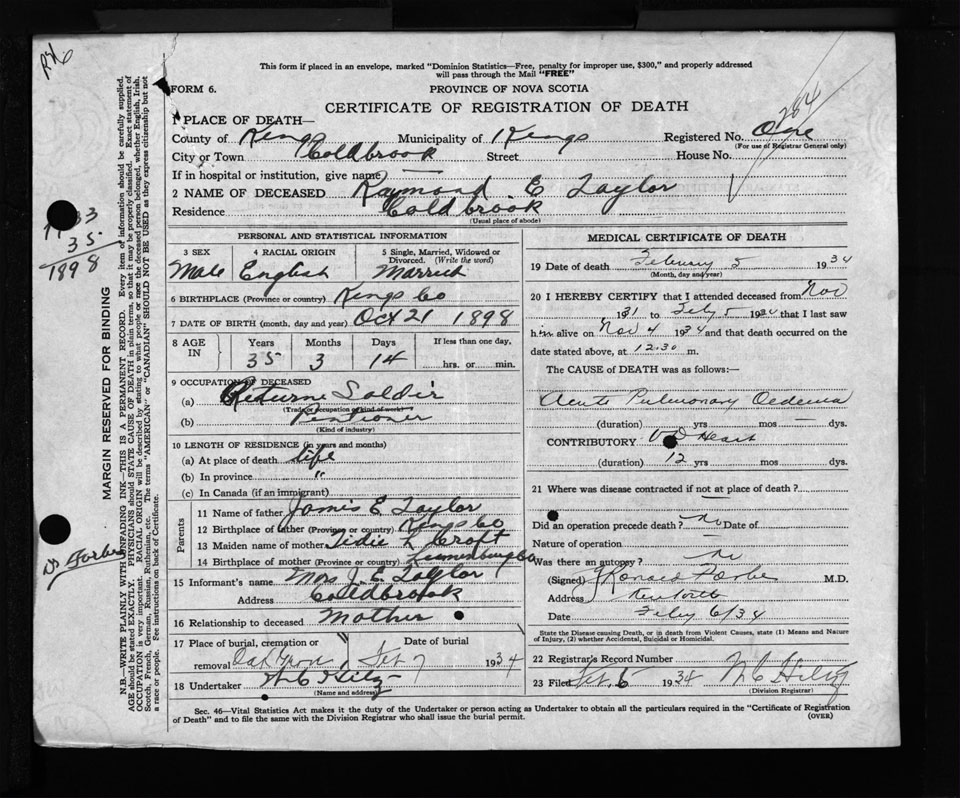 P26
This form if placed in an envelope, marked "Dominion Statistics—Free, penalty for improper use, $300," and properly addressed
will pass through the Mail "FREE"
FORM 6.
PROVINCE OF NOVA SCOTIA
CERTIFICATE OF REGISTRATION OF DEATH
284
1 PLACE OF DEATH—
County of Kings Municipality of Kings Registered No. One
(For use of Registrar General only)
City or Town Coldbrook Street House No.
If in hospital or institution, give name) —
2 NAME OF DECEASED Raymond E Taylor
Residence Coldbrook
(Usual place of abode)
PERSONAL AND STATISTICAL INFORMATION
3 SEX 4 RACIAL ORIGIN 5 Single, Married, Widowed or
Divorced. (Write the word)
Male English Married
6 BIRTHPLACE (Province or country) Kings Co
7 DATE OF BIRTH (month, day and year) Oct 21 1898
8 AGE IN Years Months Days If less than one day,
35 3 14 hrs. or min.
9 OCCUPATION OF DECEASED
(a) Return Soldir
(Trade or occupation or kind of work)
(b) Pentioner
(Kind of industry)
10 LENGTH OF RESIDENCE (in years and months)
(a) At place of death life
(b) In province "
(c) In Canada (if an immigrant)
Parents
11 Name of father James E Taylor
12 Birthplace of father (Province or country) Kings Co
13 Maiden name of mother Tidie L Croft
14 Birthplace of mother (Province or country) Lunenburg Co
15 Informant's name Mrs J. E Taylor
Address Coldbrook
16 Relationship to deceased Mother
17 Place of burial, cremation or Date of burial
removal Oak Grove Feb 7 1934
18 Undertaker W C Hiltz
(Name and address)
MEDICAL CERTIFICATE OF DEATH
19 Date of death February 5 1934
(Month, day and year)
20 I HEREBY CERTIFY that I attended deceased from Nov
1931 to Feby 5 1934 that I last saw
him alive on Nov 4 1934 and that death occurred on
date stated above, at 12.30 m.
The CAUSE of DEATH was as follows:—
Acute Pulmonary Oedema
(duration) yrs mos dys.
CONTRIBUTORY V D Heart
(duration) 12 yrs mos dys.
21 Where was disease contracted if not at place of death?
Did an operation precede death? no Date of
Nature of operation
Was there an autopsy? no
(Signed) Forbes M.D.
Address Kentville
Date Feby 6/34
State the Disease causing Death, or in death from Violent Causes, state (1) Means and Nature
of Injury, (2) whether Accidental, Suicidal or Homicidal.
22 Registrar's Record Number
23 Filed Feb. 6 1934 W C Hiltz
(Division Registrar)
Sec. 46—Vital Statistics Act makes it the duty of the Undertaker or person acting as Undertaker to obtain all the particulars required in the "Certificate of Registration
of Death" and to file the same with the Division Registrar who shall issue the burial permit. (OVER)
33
35
1898
Dr Forbes
MARGIN RESERVED FOR BINDING
N.B.—WRITE PLAINLY WITH UNFADING INK—THIS IS A PERMANENT RECORD. Every item of information should be carefully supplied.
AGE should be stated EXACTLY. PHYSICIANS should STATE CAUSE OF DEATH in plain terms, so that it may be properly classified. Exact statement of
OCCUPATION is very important. RACIAL ORIGIN will be described by stating to what people or race the deceased person belonged, whether English, Irish,
Scotch, French, German, Russian, Ruthenian, etc. The terms "AMERICAN" or "CANADIAN" SHOULD NOT BE USED as they express citizenship but not
a race or people. See instructions on back of Certificate.